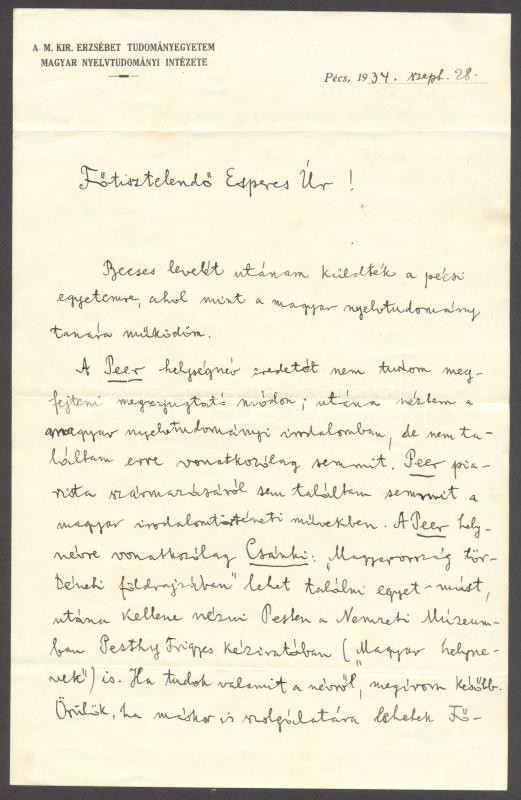 A M. KIR. ERZSÉBET TUDOMÁNYEGYETEM
MAGYAR NYELVTUDOMÁNYI INTÉZETE
Pécs, 1934. szept. 28.
Főtisztelendő Esperes Úr !
Becses levelét utánam küldték a pécsi
egyetemre, ahol mint a magyar nyelvtudomány
tanára működöm.
A Peer helységnév eredetét nem tudom meg-
fejteni megnyugtató módon; utána néztem a
magyar nyelvtudományi irodalomban, de nem ta-
láltam erre vonatkozólag semmit. Peer pia-
rista származásáról sem találtam semmit a
magyar irodalomtörténeti művekben. A Peer hely-
névre vonatkozólag Csánki: „Magyarország tör-
téneti földrajzában" lehet találni egyet-mást,
utána kellene nézni Pesten a Nemzeti Múzeum-
ban Pesthy Frigyes kéziratában („Magyar helyne-
vek") is. Ha tudok valamit a névről, megírom később.
Örülök, ha máskor is szolgálatára lehetek Fő-